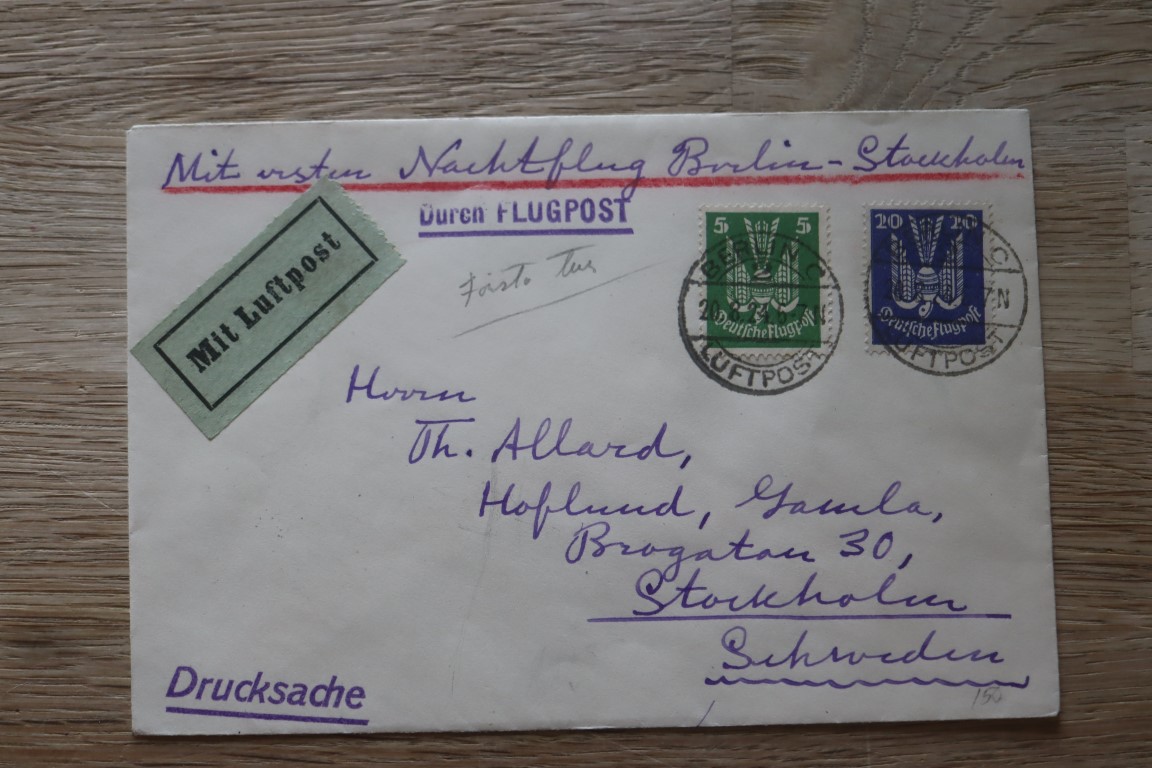 Mit ersten Nachtflug Berlin-Stockholm
Durch FLUGPOST
Mit Luftpost
Första tur
5 5
Deutsche Flugpost
20 20
Deutsche Flugpost
BERLIN C
20.8.24 6-7N
LUFTPOST
C
7N
LUFTPOST
Herrn
Th. Allard,
Hoflund, Gamla,
Brogatan 30,
Stockholm
Schweden
Drucksache
150